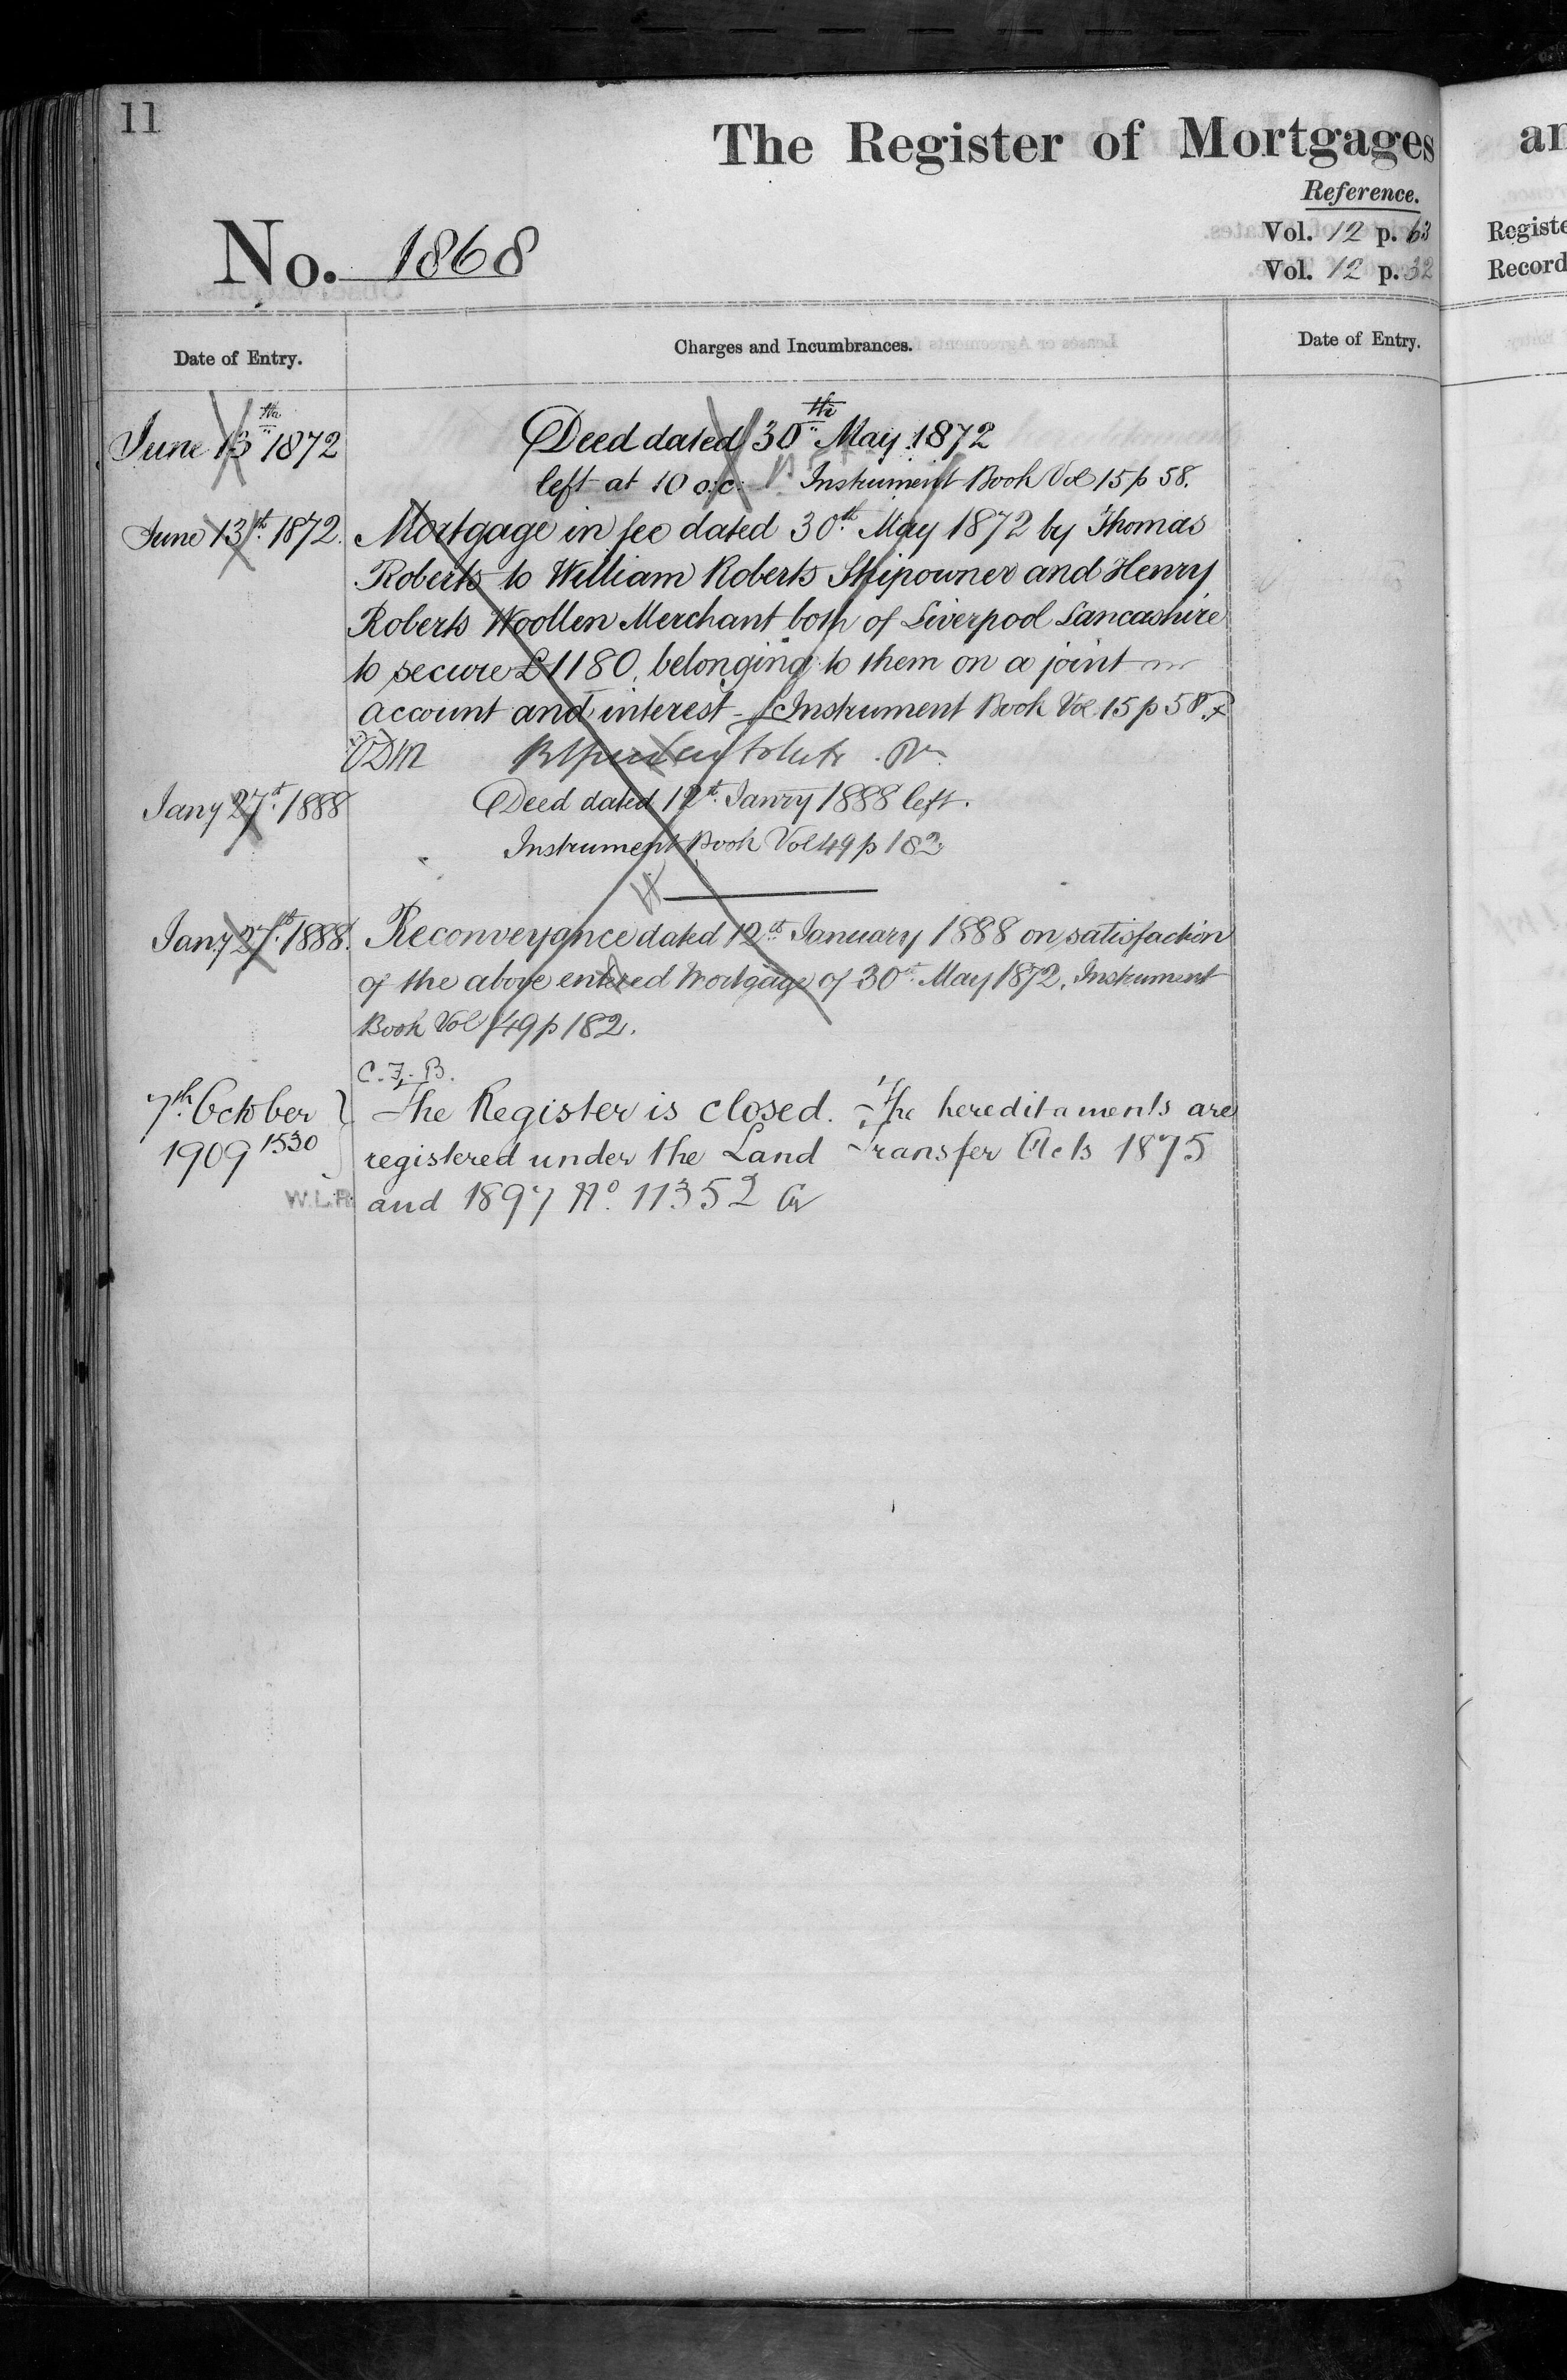 11
The Register of Mortgages
Reference.
No. 1868
Vol. 12 p. 63
Vol. 12 p. 32
Date of Entry.
Charges and Incumbrances.
Date of Entry.
June 13th 1872
Deed dated 30th May 1872
left at 10 o.c. Instrument Book Vol 15 p 58.
June 13th 1872.
Mortgage in fee dated 30th May 1872 by Thomas
Roberts to William Roberts Shipowner and Henry
Roberts Woollen Merchant both of Liverpool Lancashire
to secure £1180, belonging to them on a joint
account and interest - Instrument Book Vol. 15 p 58.
Jany 27th 1888
Deed dated 12th Janry 1888 left.
Instrument Book Vol 49 p 182
Jany 27th 1888.
Reconveyance dated 12th January 1888 on satisfaction
of the above entered Mortgage of 30th May 1872, Instrument
Book Vol 49 p 182.
C. F. B.
7th October
1909 1530
W.L.R.
The Register is closed. The hereditaments are
registered under the Land Transfer Acts 1875
and 1897 No. 11352
an
Registe
Record